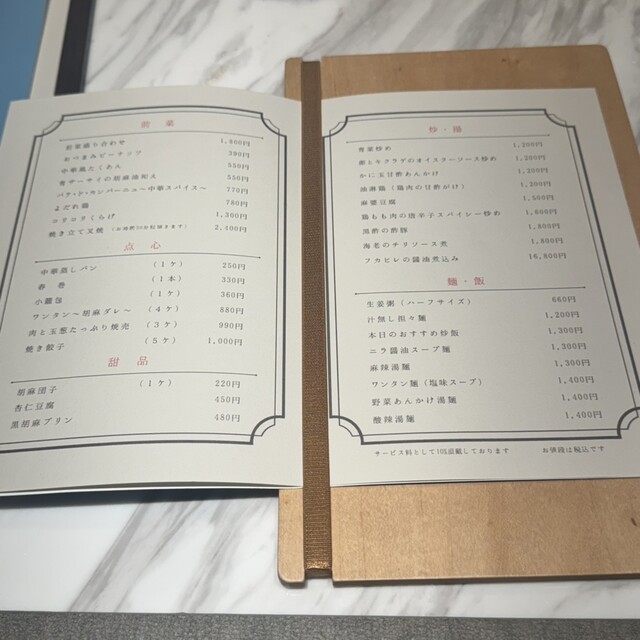 前菜
前菜盛り合わせ 1,800円
おつまみピーナッツ 390円
中華風たくあん 550円
青ザーサイの胡麻油和え 550円
パテ・ド・カンパーニュ～中華スパイス～ 770円
よだれ鶏 780円
コリコリくらげ 1,300円
焼き立て叉焼 2,400円
点心
中華蒸しパン （1ケ） 250円
春巻 （1本） 330円
小籠包 （1ケ） 360円
ワンタン～胡麻ダレ～ （4ケ） 880円
肉と玉葱たっぷり焼売 （3ケ） 990円
焼き餃子 （5ケ） 1,000円
甜品
胡麻団子 （1ケ） 220円
杏仁豆腐 450円
黒胡麻プリン 480円
炒・湯
青菜炒め 1,200円
卵とキクラゲのオイスターソース炒め 1,200円
かに玉甘酢あんかけ 1,200円
油淋鶏（鶏肉の甘酢がけ） 1,200円
麻婆豆腐 1,500円
鶏もも肉の唐辛子スパイシー炒め 1,600円
黒酢の酢豚 1,800円
海老のチリソース煮 1,800円
フカヒレの醤油煮込み 16,800円
麺・飯
生姜粥（ハーフサイズ） 660円
汁無し担々麺 1,200円
本日のおすすめ炒飯 1,300円
ニラ醤油スープ麺 1,300円
麻辣湯麺 1,300円
ワンタン麺（塩味スープ） 1,400円
野菜あんかけ湯麺 1,400円
酸辣湯麺 1,400円
サービス料として10%頂戴しております お値段は税込です